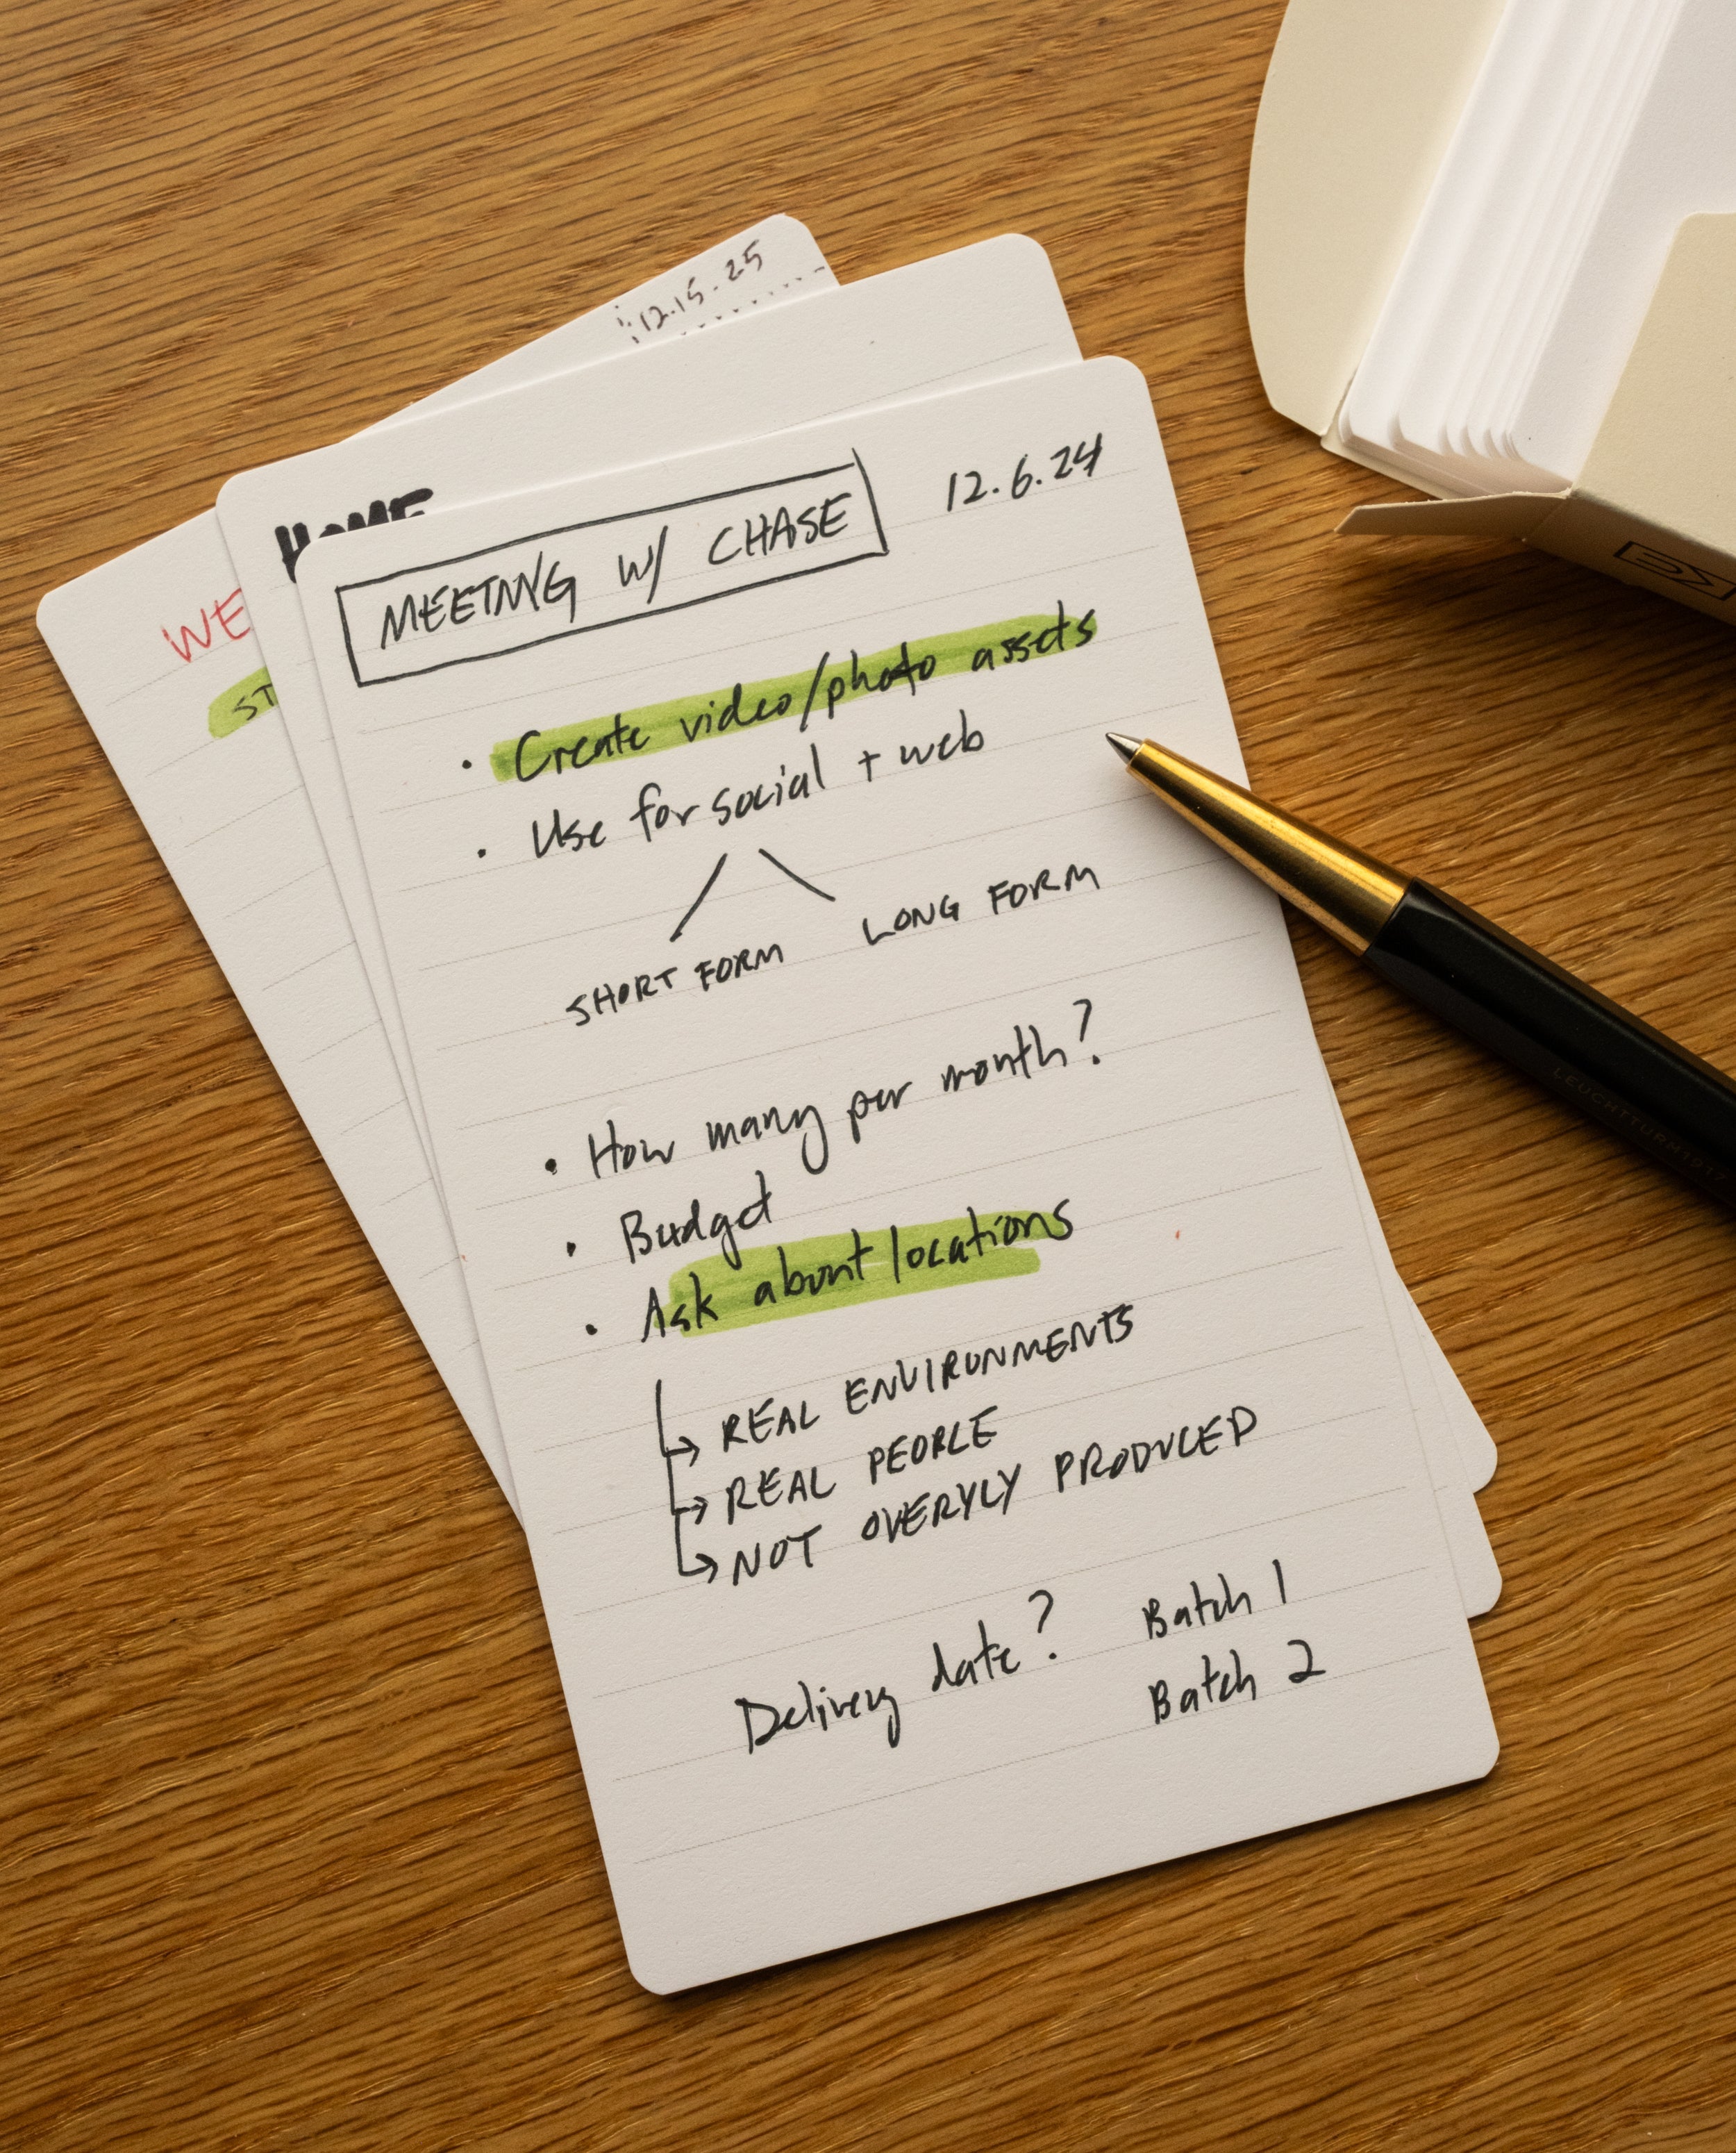 12.15.25
HOME
WE
ST
MEETING W/ CHASE
12.6.24
• Create video/photo assets
• Use for social + web
SHORT FORM LONG FORM
• How many per month?
• Budget
• Ask about locations
→ REAL ENVIRONMENTS
→ REAL PEOPLE
→ NOT OVERYLY PRODUCED
Delivery date? Batch 1
Batch 2
LEUCHTTURM1917